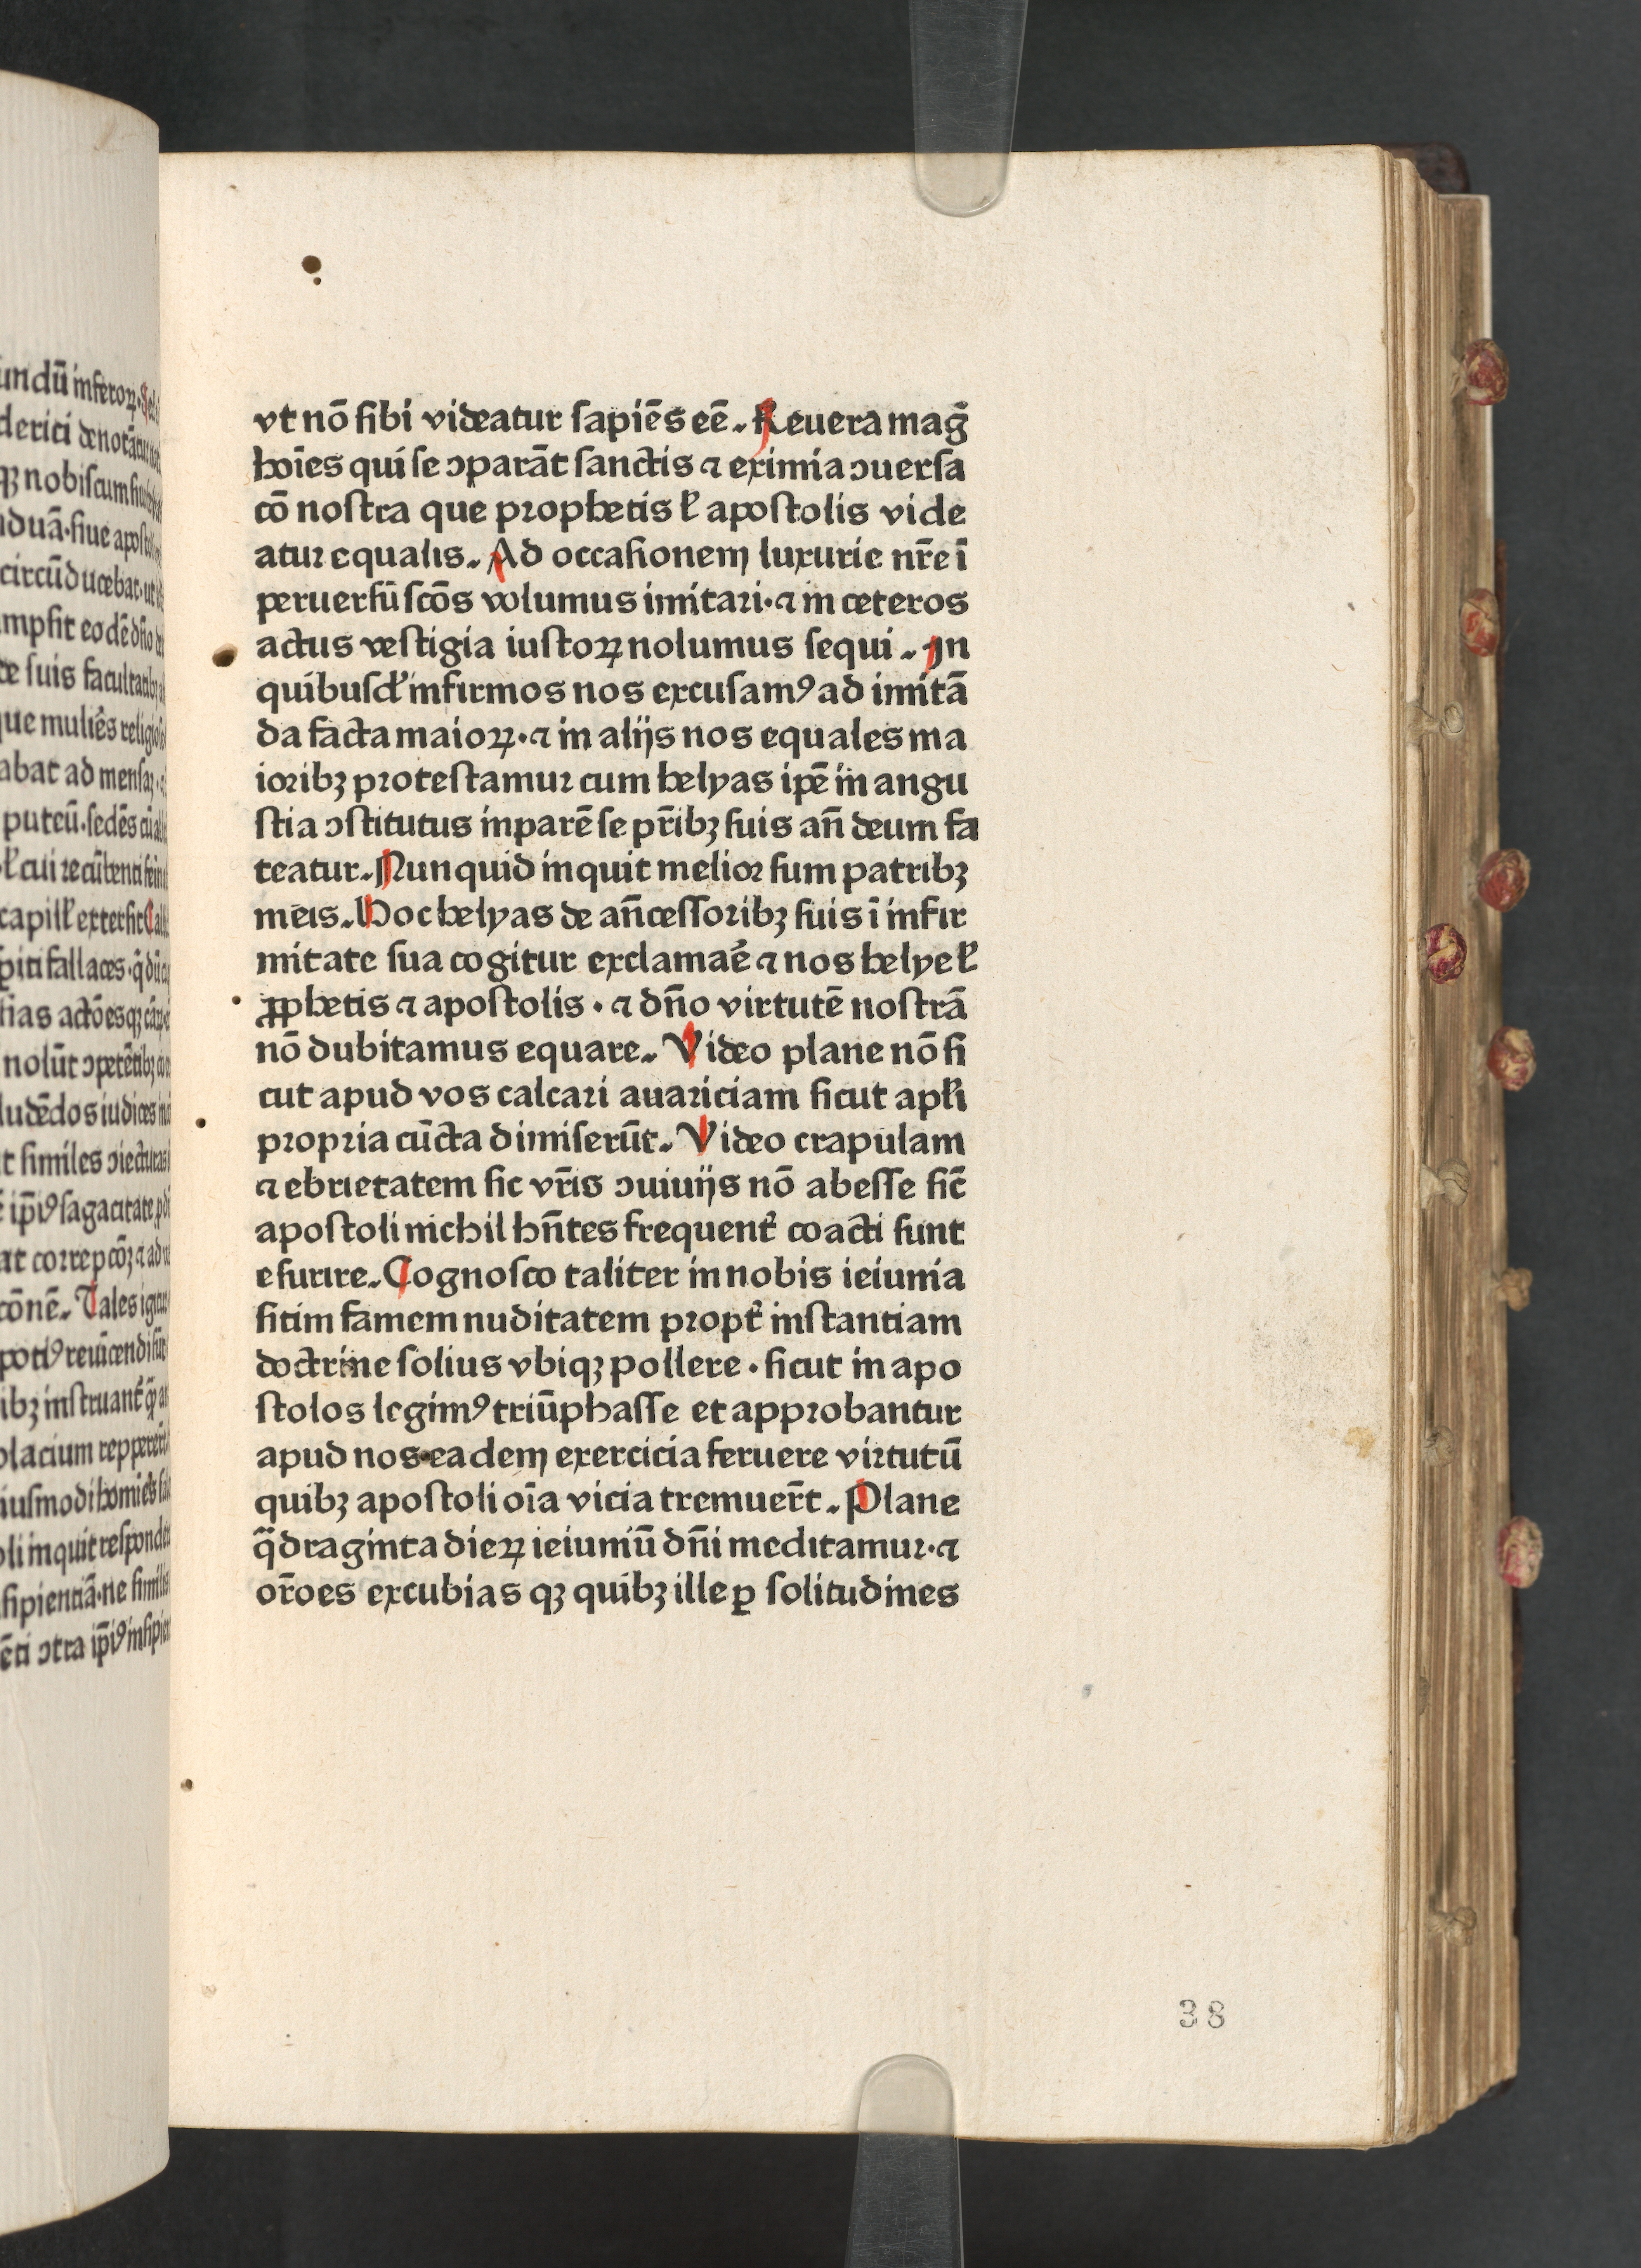 vt nō ſibi videatur ſapiēs eē. Reuera mag̃
hoīes qui ſe ↄparāt ſanctis ⁊ eximia ↄuerſa
cō noſtra que prophetis ł apoſtolis vide
atur equalis. Ad occaſionem luxurie nr̄e ī
peruerſū ſcōs volumus imitari·⁊ in ceteros
actus veſtigia iuſtoꝝ nolumus ſequi. In
quibuſdꝉ infirmos nos excuſamꝰ ad imitā
da facta maioꝝ·⁊ in alijs nos equales ma
ioribꝫ proteſtamur cum helyas ipē in angu
ſtia ↄſtitutus inparē ſe pr̄ibꝫ ſuis an̄ deum fa
teatur. Nunquid inquit melior ſum patribꝫ
meis. Hoc helyas de an̄ceſſoribꝫ ſuis ī infir
mitate ſua cogitur exclamaē ⁊ nos helye ł
ꝓphetis ⁊ apoſtolis · ⁊ dn̄o virtutē noſtrā
nō dubitamus equare. Video plane nō ſi
cut apud vos calcari auariciam ſicut apłi
propria cūcta dimiſerūt. Video crapulam
⁊ ebrietatem ſic vr̄is ↄuiuijs nō abeſſe ſic̄
apoſtoli nichil hn̄tes frequent᷑ coacti ſunt
eſurire. Cognoſco taliter in nobis ieiunia
ſitim famem nuditatem propt᷑ inſtantiam
doctrine ſolius vbiqꝫ pollere · ſicut in apo
ſtolos legimꝰ triūphaſſe et approbantur
apud nos eadem exercicia feruere virtutū
quibꝫ apoſtoli oīa vicia tremuer̄t. Plane
q̄draginta dieꝝ ieiuniū dn̄i meditamur·⁊
or̄oes excubias qꝫ quibꝫ ille ꝑ ſolitudines
38